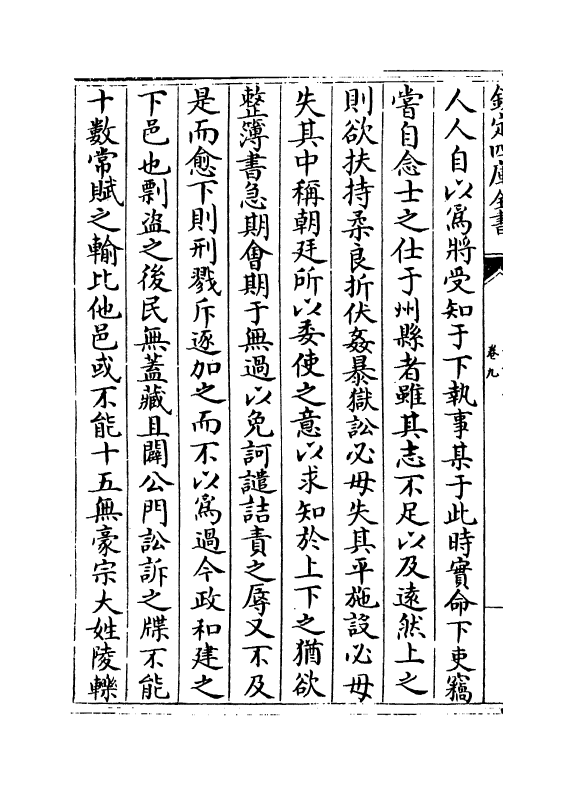 欽定四庫全書
卷九
人人自以爲將受知于下執事某于此時實命下吏竊
嘗自念士之仕于州縣者雖其志不足以及遠然上之
則欲扶持柔良折伏姦暴獄訟必毋失其平施設必毋
失其中稱朝廷所以委使之意以求知於上下之猶欲
整簿書急期會期于無過以免訶譴詰責之辱又不及
是而愈下則刑戮斥逐加之而不以爲過今政和建之
下邑也剽盜之後民無蓋藏且闢公門訟訴之牒不能
十數常賦之輸比他邑或不能十五無豪宗大姓陵轢